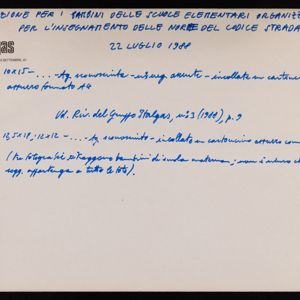 ZIONE PER I BAMBINI DELLE SCUOLE ELEMENTARI ORGANIZZ
PER L'INSEGNAMENTO DELLE NORME DEL CODICE STRADA
22 LUGLIO 1988
gas
10x15 - .... - Ag. sconosciuta - incollate su cartoncino
azzurro formato A4
Vd. Riv. del Gruppo Italgas, n.3 (1988), p. 9
13,5x19; 12x12 - .... - Ag. sconosciuta - incollato su cartoncino azzurro
(tre fotografie ritraggono bambini di scuola materna; non è
sogg. appartenga a tutte le foto).